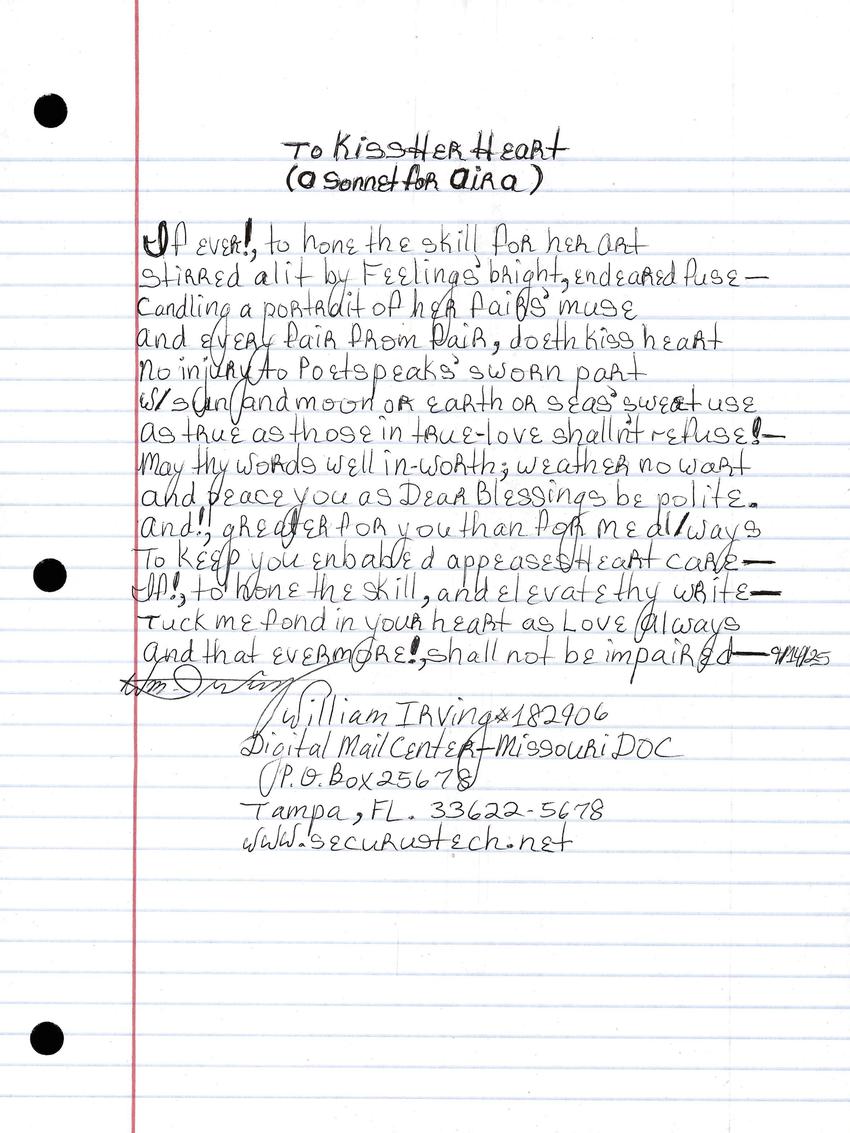 To Kiss Her Heart
(a sonnet for aira)
If ever!, to hone the skill for her art
stirred alit by Feelings' bright, endeared fuse—
Candling a portrait of her fairs' muse
and every fair from fair, doeth kiss heart
No injury to Poetspeaks' sworn part
w/sun and moon or earth or seas' sweet use
as true as those in true-love shalln't refuse!—
May thy words well in-worth; weather no wart
and peace you as Dear Blessings be polite.
and!, greater for you than for me al/ways
To keep you enbabled appeases Heart care—
If!, to hone the skill, and elevate thy write—
Tuck me fond in your heart as Love always
and that evermore!, shall not be impaired—9/14/25
Wm. Irving
William Irving*182906
Digital Mail Center-Missouri DOC
P.O. Box 25678
Tampa, FL. 33622-5678
www.securustech.net